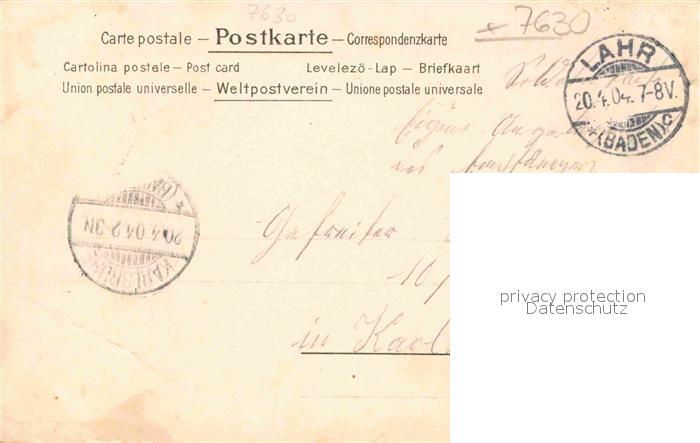 7630
× 7630
Carte postale – Postkarte – Correspondenzkarte
Cartolina postale – Post card Levelezö-Lap – Briefkaart
Union postale universelle – Weltpostverein – Unione postale universale
LAHR
20.4.04. 7-8V.
* (BADEN) c
Eigene
des Empfängers
(BA
20.4.04.2-3N
KARLSRUHE
Gefreiter
10/
in Karl
privacy protection
Datenschutz